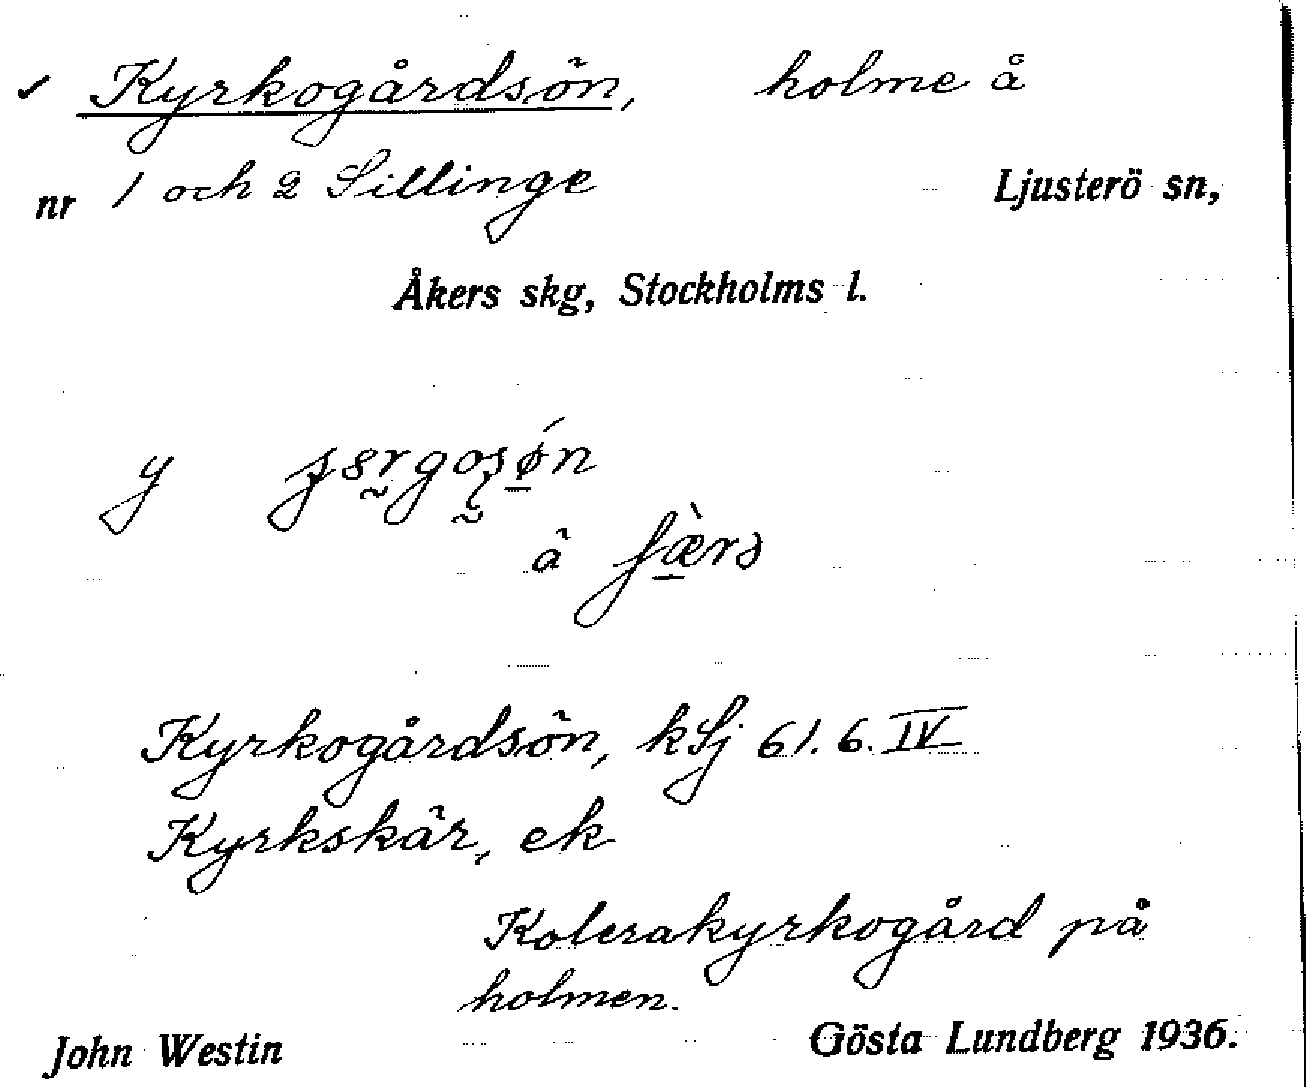 ✓ Kyrkogårdsön, holme å
nr 1 och 2 Sillinge Ljusterö sn,
Åkers skg, Stockholms l.
y
â
Kyrkogårdsön, kSj 61. 6. IV
Kyrkskär, ek
Kolerakyrkogård på
holmen.
John Westin Gösta Lundberg 1936.